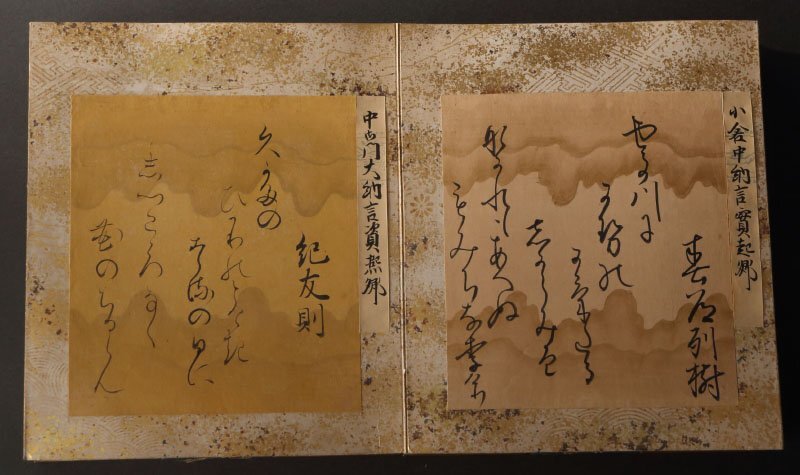 小倉中納言實起卿
春道列樹
山川に
かせの
かけたる
しからみは
なかれもあへぬ
もみちなりけり
中御門大納言資熙卿
紀友則
久かたの
ひかりのとけき
はるの日に
しつこころなく
花のちるらん